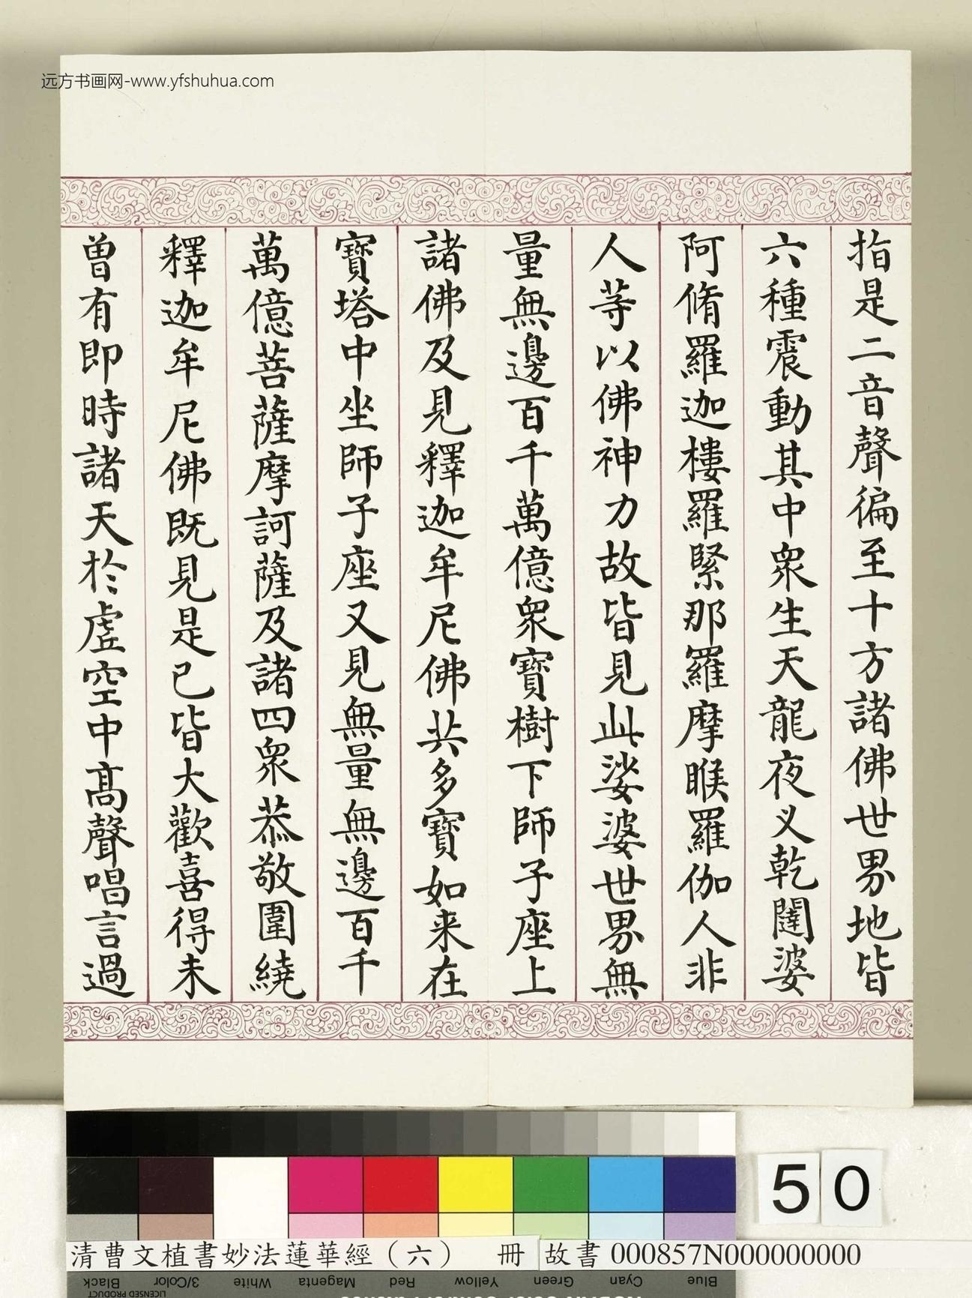 远方书画网-www.yfshuhua.com
指是二音聲徧至十方諸佛世界地皆
六種震動其中衆生天龍夜义乾闥婆
阿脩羅迦樓羅緊那羅摩睺羅伽人非
人等以佛神力故皆見此娑婆世界無
量無邊百千萬億衆寶樹下師子座上
諸佛及見釋迦牟尼佛共多寶如来在
寶塔中坐師子座又見無量無邊百千
萬億菩薩摩訶薩及諸四衆恭敬圍繞
釋迦牟尼佛既見是已皆大歡喜得未
曽有即時諸天於虛空中髙聲唱言過
50
清曹文植書妙法蓮華經（六） 冊 故書000857N000000000
Black 3/Color White Magenta Red Yellow Green Cyan Blue
LICENSED PRODUCT